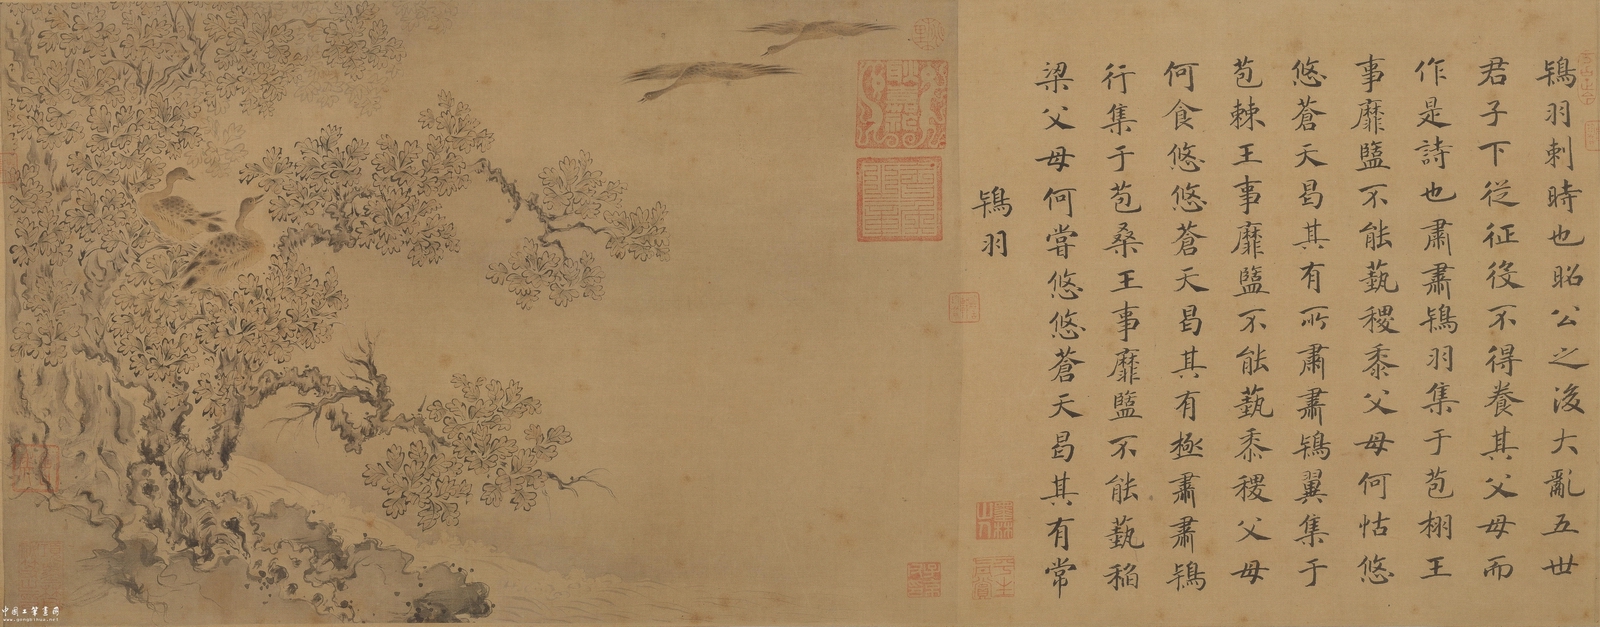 鴇羽刺時也昭公之後大亂五世
君子下從征役不得養其父母而
作是詩也肅肅鴇羽集于苞栩王
事靡盬不能蓺稷黍父母何怙悠
悠蒼天曷其有所肅肅鴇翼集于
苞棘王事靡盬不能蓺黍稷父母
何食悠悠蒼天曷其有極肅肅鴇
行集于苞桑王事靡盬不能蓺稻
梁父母何嘗悠悠蒼天曷其有常
鴇羽
中國工筆畫網
www.gongbihua.net